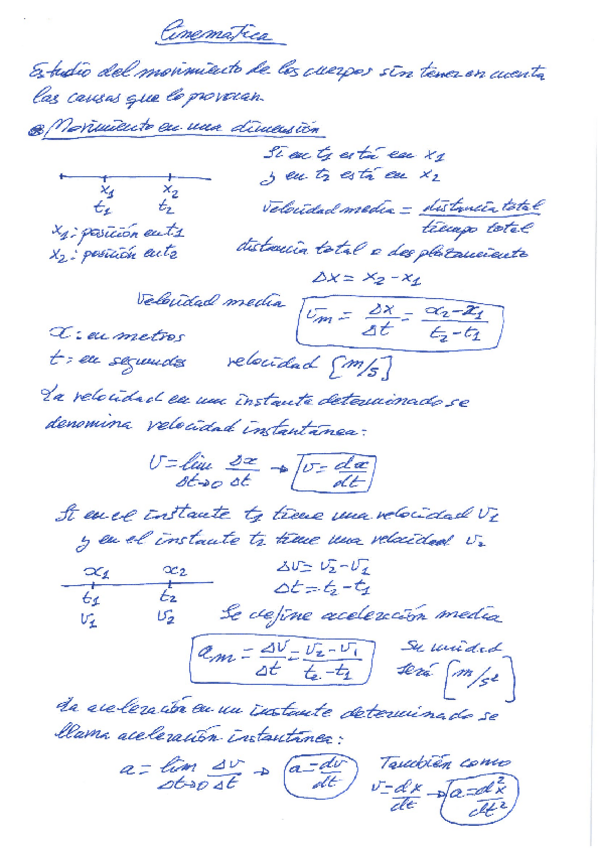 Cinemática
Estudio del movimiento de los cuerpos sin tener en cuenta
las causas que lo provocan.
Movimiento en una dimensión
Si en t1 está en x1
y en t2 está en x2
x1 x2
t1 t2
velocidad media = distancia total / tiempo total
x1: posición en t1
x2: posición en t2
distancia total o desplazamiento
Δx = x2 - x1
Velocidad media
vm = Δx/Δt = x2-x1/t2-t1
x: en metros
t: en segundos velocidad [m/s]
La velocidad en un instante determinado se
denomina velocidad instantánea:
v = lim Δt→0 Δx/Δt → v = dx/dt
Si en el instante t1 tiene una velocidad v1
y en el instante t2 tiene una velocidad v2
x1 x2
t1 t2
v1 v2
Δv = v2 - v1
Δt = t2 - t1
Se define aceleración media
am = Δv/Δt = v2-v1/t2-t1
Su unidad
será [m/s²]
La aceleración en un instante determinado se
llama aceleración instantánea:
a = lim Δt→0 Δv/Δt → a = dv/dt
También como
v = dx/dt → a = d²x/dt²